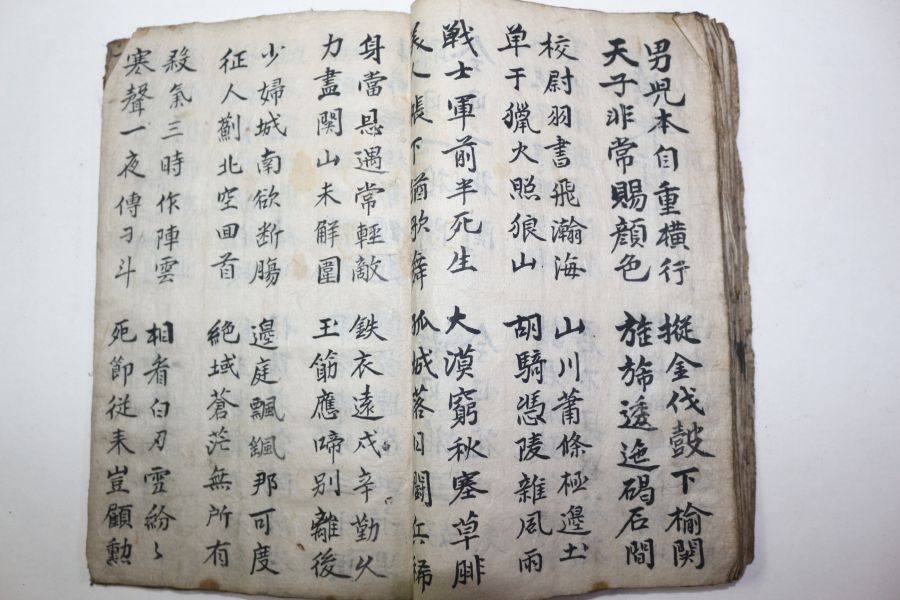 男児本自重橫行
天子非常賜顔色
摐金伐皷下榆関
旌斾逶迤碣石間
校尉羽書飛瀚海
单于獵火照狼山
山川蕭條極邉土
胡騎憑陵雜风雨
戦士軍前半死生
美人帳下猶歌舞
大漠窮秋塞草腓
孤城落日鬪兵稀
身當恩遇常輕敵
力盡関山未解圍
鉄衣遠戍辛勤久
玉筯應啼別離後
少婦城南欲断膓
征人薊北空回首
邉庭飄颻那可度
絶域蒼茫無所有
殺氣三時作陣雲
寒聲一夜傳刁斗
相看白刃雪紛〻
死節從来豈顧勲